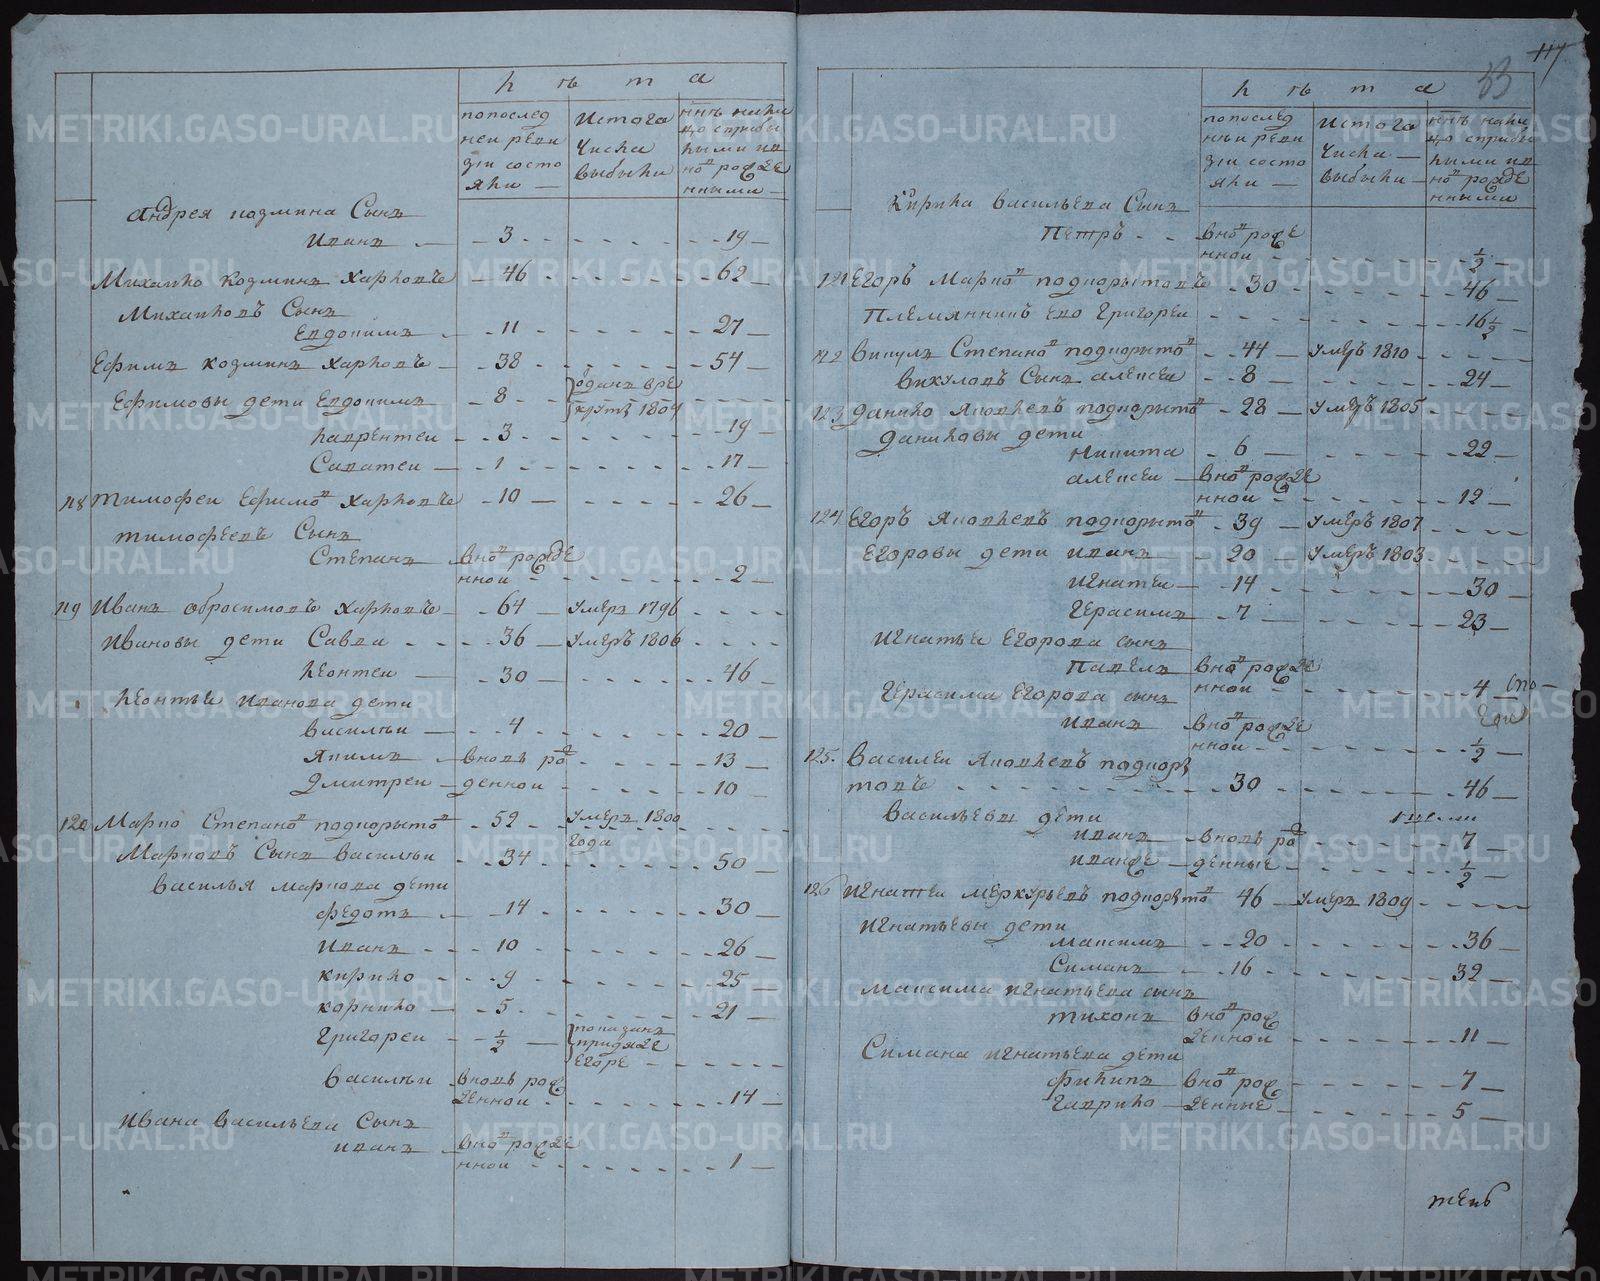 лѣта
по послед
ней реви
зіи состо
яли
Из того
числа
выбыли
ннѣ нали
цо с прибы
лыми и в
но рожде
нными
Андрея козмина Сынъ
иванъ 3 19
Михайло козминъ харловъ 46 62
Михайловъ Сынъ
Евдокимъ 11 27
Ефимъ козминъ харловъ 38 54
Ефимовы дети Евдокимъ 8 оданъ вре
круты 1804
лаврентеи 3 19
Саватеи 1 17
118 тимофеи Ефимов харловъ 10 26
тимофеевъ Сынъ
Степанъ вновь рожде
нной 2
119 Иванъ обросимовъ харловъ 64 умеръ 1796
Ивановы дети Савва 36 умеръ 1806
леонтеи 30 46
леонтья иванова дети
василеи 4 20
якимъ вновь ро 13
дмитреи жденной 10
120 Марко Степанов подкорытов 52 умеръ 1800
года
Марковъ Сынъ василеи 34 50
василья маркова дети
федотъ 14 30
иванъ 10 26
кирило 9 25
корнило 5 21
григореи ½ показанъ
при дяде
Егоре
василеи вновь рож
денной 14
Ивана васильева Сынъ
иванъ вновь рожде
нной 1
117
53
лѣта
по послед
неи реви
зіи состо
яли
Из того
числа
выбыли
ннѣ нали
цо с прибы
лыми и в
но рожде
нными
Кирила васильева Сынъ
петръ вновь рожде
нной ½
121 Егоръ Марков подкорытовъ 30 46
племянникъ его григореи 16½
122 викулъ Степанов подкорытов 44 умеръ 1810
викуловъ Сынъ алексеи 8 24
123 данило яковлевъ подкорытов 28 умеръ 1805
даниловы дети
никита 6 22
алексеи вновь рожде
нной 12
124 Егоръ яковлевъ подкорытов 39 умеръ 1807
Егоровы дети иванъ 20 умеръ 1803
игнатеи 14 30
герасимъ 7 23
игнатья Егорова сынъ
павелъ вновь рожде
нной 4
герасима Егорова сынъ
иванъ вновь рожде
нной ½
125. василеи яковлевъ подкоры
товъ 30 46
васильевы дети
иванъ вновь ро 7
иванже жденные ½
126 игнатеи меркурьевъ подкорытов 46 умеръ 1809
игнатьевы дети
максимъ 20 36
Симанъ 16 32
максима игнатьева сынъ
тихонъ вновь рож
денной 11
Симана игнатьева дети
филипъ вновь рож 7
гаврило денные 5
METRIKI.GASO-URAL.RU